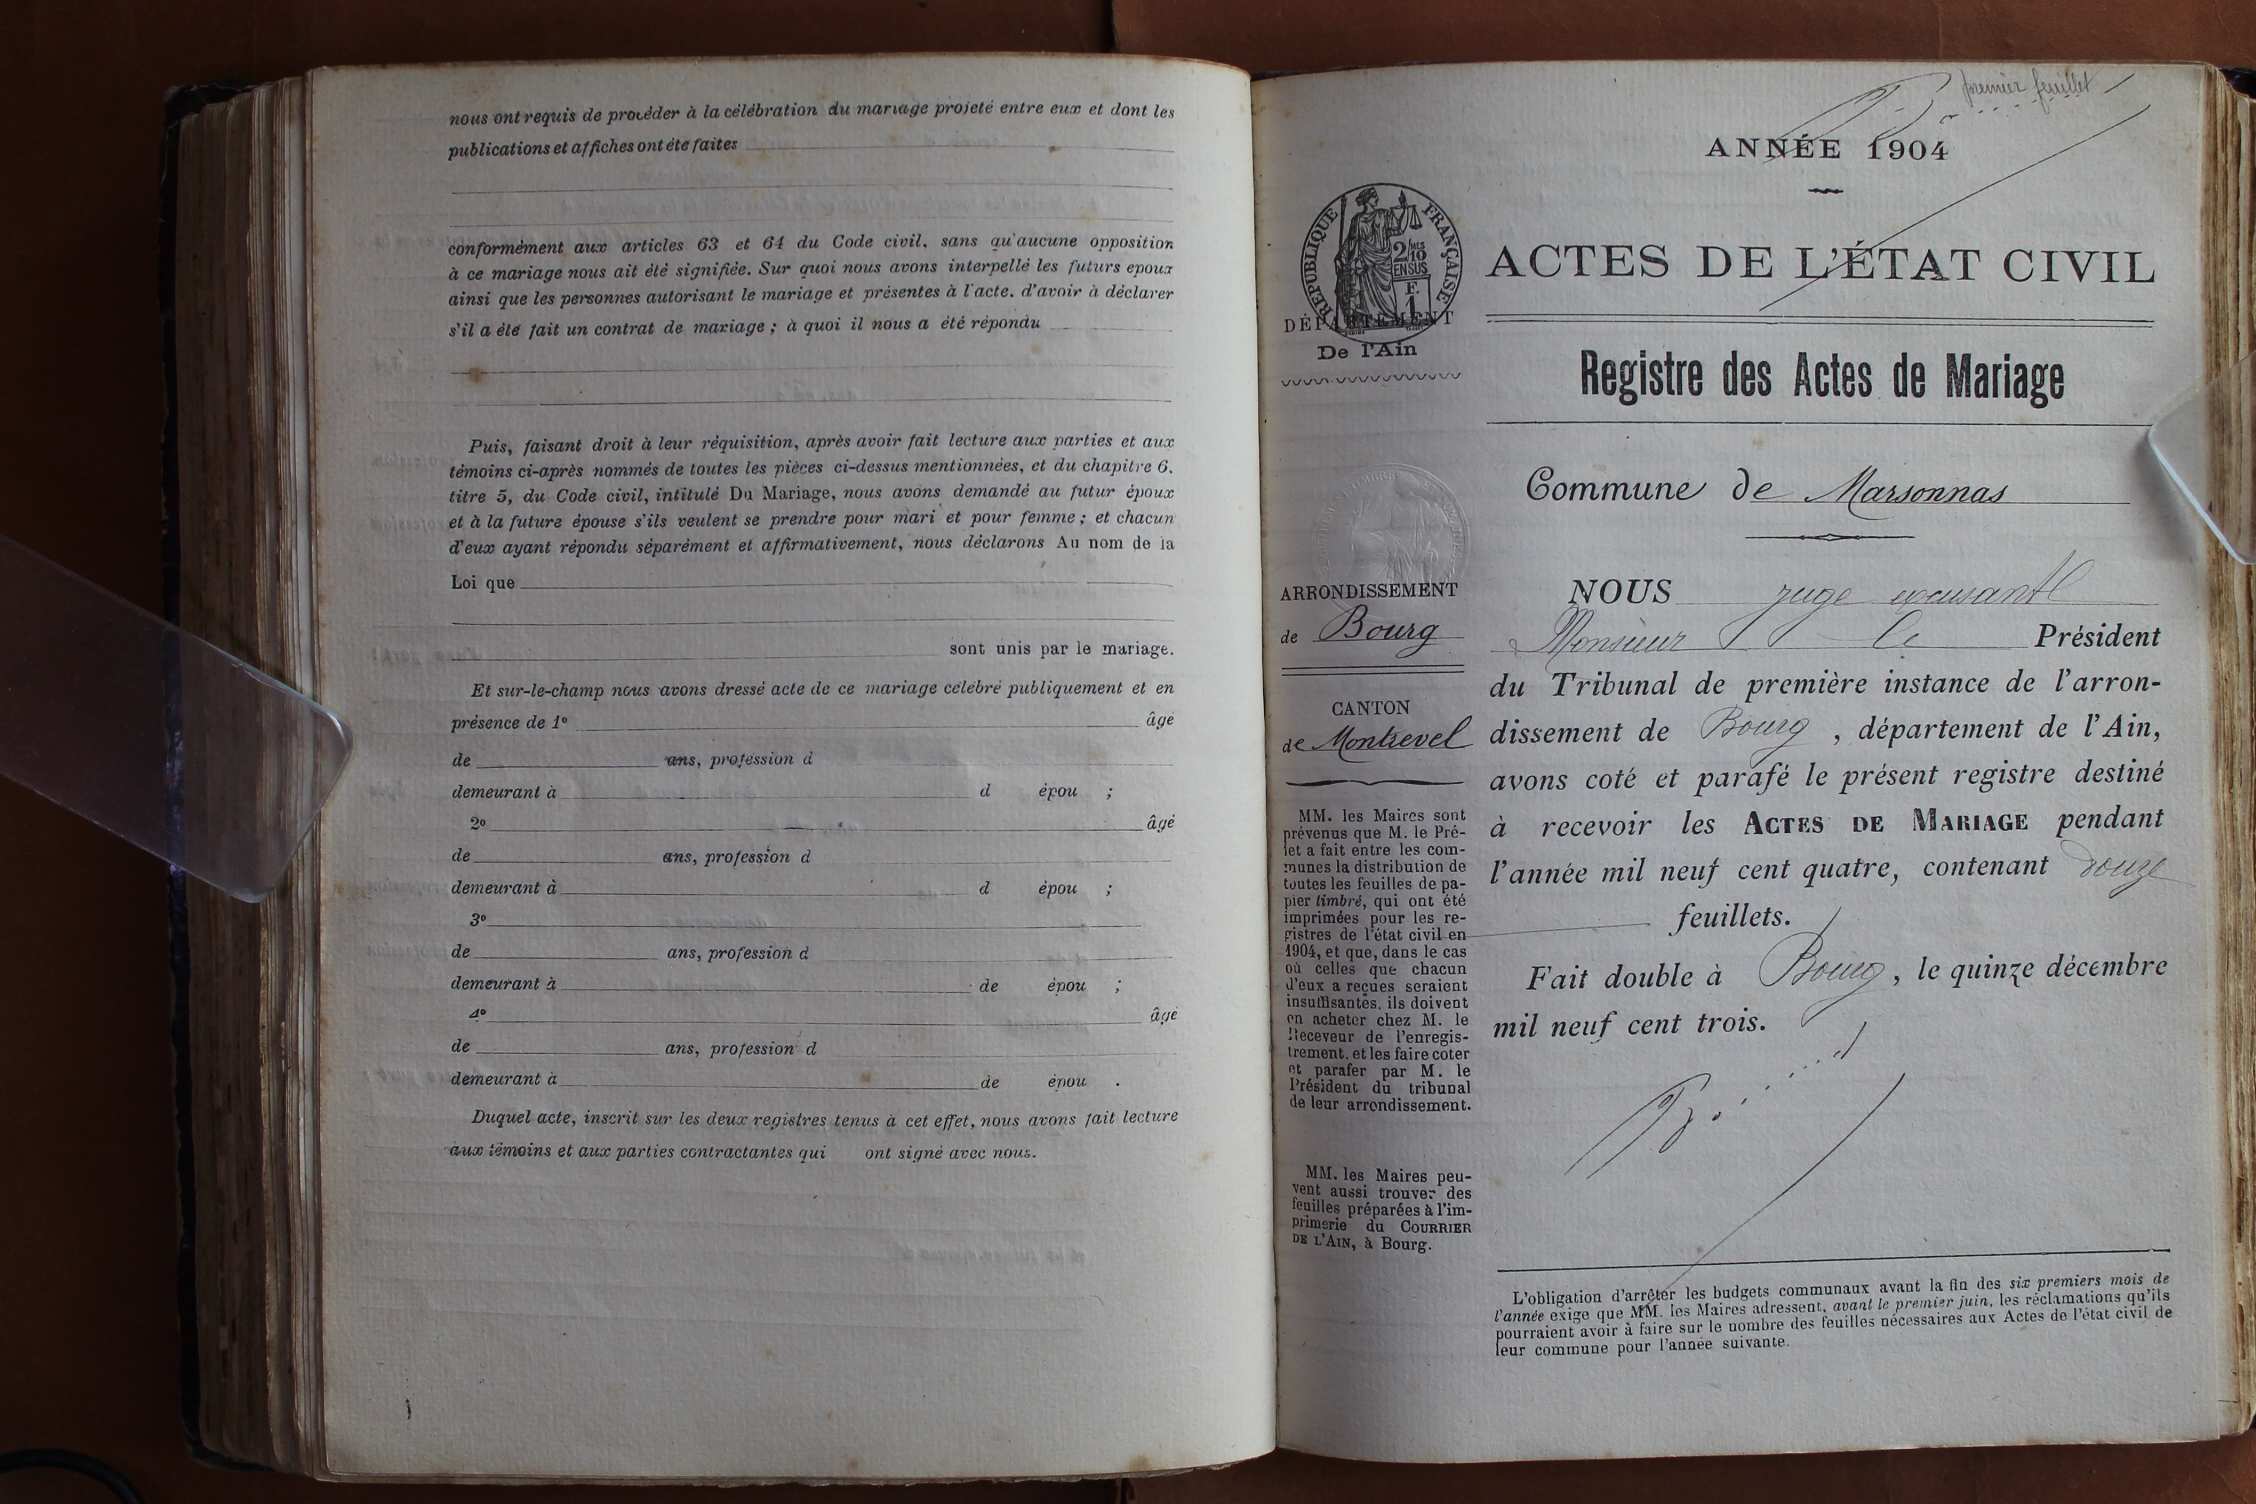 nous ont requis de procéder à la célébration du mariage projeté entre eux et dont les
publications et affiches ont été faites
conformément aux articles 63 et 64 du Code civil, sans qu'aucune opposition
à ce mariage nous ait été signifiée. Sur quoi nous avons interpellé les futurs epoux
ainsi que les personnes autorisant le mariage et présentes à l'acte, d'avoir à déclarer
s'il a été fait un contrat de mariage ; à quoi il nous a été répondu
Puis, faisant droit à leur réquisition, après avoir fait lecture aux parties et aux
témoins ci-après nommés de toutes les pièces ci-dessus mentionnées, et du chapitre 6,
titre 5, du Code civil, intitulé Du Mariage, nous avons demandé au futur époux
et à la future épouse s'ils veulent se prendre pour mari et pour femme ; et chacun
d'eux ayant répondu séparément et affirmativement, nous déclarons Au nom de la
Loi que
sont unis par le mariage.
Et sur-le-champ nous avons dressé acte de ce mariage célébré publiquement et en
présence de 1º âgé
de ans, profession d
demeurant à d épou ;
2º âgé
de ans, profession d
demeurant à d épou ;
3º
de ans, profession d
demeurant à de épou ;
4º âgé
de ans, profession d
demeurant à de épou .
Duquel acte, inscrit sur les deux registres tenus à cet effet, nous avons fait lecture
aux témoins et aux parties contractantes qui ont signé avec nous.
premier feuillet
ANNÉE 1904
ACTES DE L'ÉTAT CIVIL
RÉPUBLIQUE FRANÇAISE
2/10 MES
EN SUS
F.
1
DÉPARTEMENT
De l'Ain
Registre des Actes de Mariage
Commune de Marsonnas
ARRONDISSEMENT
de Bourg
CANTON
de Montrevel
MM. les Maires sont
prévenus que M. le Pré-
fet a fait entre les com-
munes la distribution de
toutes les feuilles de pa-
pier timbré, qui ont été
imprimées pour les re-
gistres de l'état civil en
1904, et que, dans le cas
où celles que chacun
d'eux a reçues seraient
insuffisantes, ils doivent
en acheter chez M. le
Receveur de l'enregis-
trement, et les faire coter
et parafer par M. le
Président du tribunal
de leur arrondissement.
MM. les Maires peu-
vent aussi trouver des
feuilles préparées à l'im-
primerie du COURRIER
DE L'AIN, à Bourg.
NOUS juge
Monsieur le Président
du Tribunal de première instance de l'arron-
dissement de Bourg, département de l'Ain,
avons coté et parafé le présent registre destiné
à recevoir les ACTES DE MARIAGE pendant
l'année mil neuf cent quatre, contenant douze
feuillets.
Fait double à Bourg, le quinze décembre
mil neuf cent trois.
L'obligation d'arrêter les budgets communaux avant la fin des six premiers mois de
l'année exige que MM. les Maires adressent, avant le premier juin, les réclamations qu'ils
pourraient avoir à faire sur le nombre des feuilles nécessaires aux Actes de l'état civil de
leur commune pour l'année suivante.